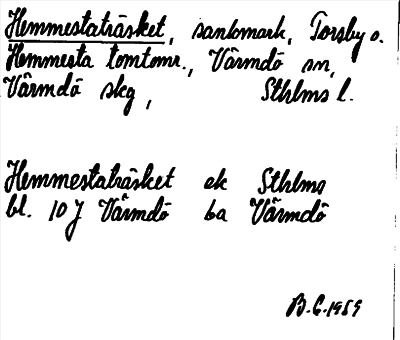 Hemmestaträsket, sankmark, Torsby o.
Hemmesta tomtomr., Värmdö sn,
Värmdö skg, Sthlms l.
Hemmestaträsket ek Sthlms
bl. 10J Värmdö ba Värmdö
B.G.1959